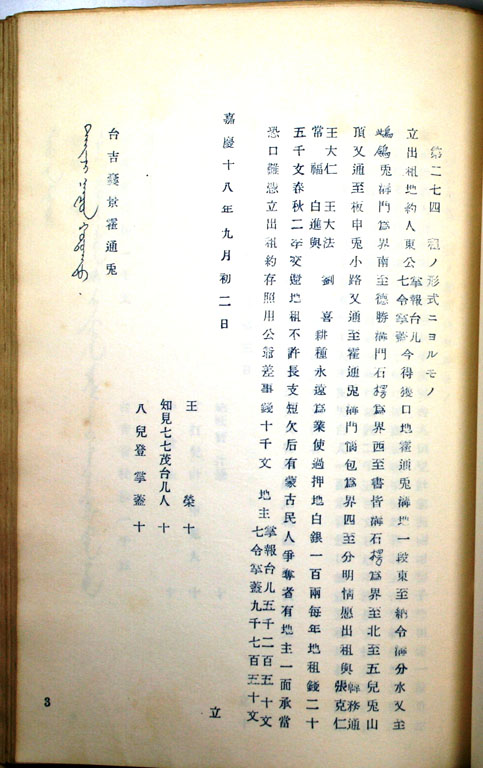 第二七四　租ノ形式ニヨルモノ
立出租地約人東公掌報台儿七令掌盖今得獲口地霍通兎溝地一段東至納令溝分水又至
鴣鴿兎溝門爲界南至德勝溝門石楞爲界西至書皆溝石楞爲界至北至五兒兎山
頂又通至板申兎小路又通至霍通兎溝門惱包爲界四至分明情愿出租與韓務通張克仁
王大仁　王大法　劉　喜耕種永遠爲業使過押地白銀一百兩每年地租錢二十
常　福　白進與
五千文春秋二季交還地租不許長支短欠后有蒙古民人爭奪者有地主一面承當
恐口無憑立出租約存照用公爺差事錢十千文　地主掌報台儿五千二百五十文七令掌盖九千七百五十文
立
嘉慶十八年九月初二日
王　榮十
知見七七茂台儿人十
八兒登掌盖十
台吉
霍通兎
3